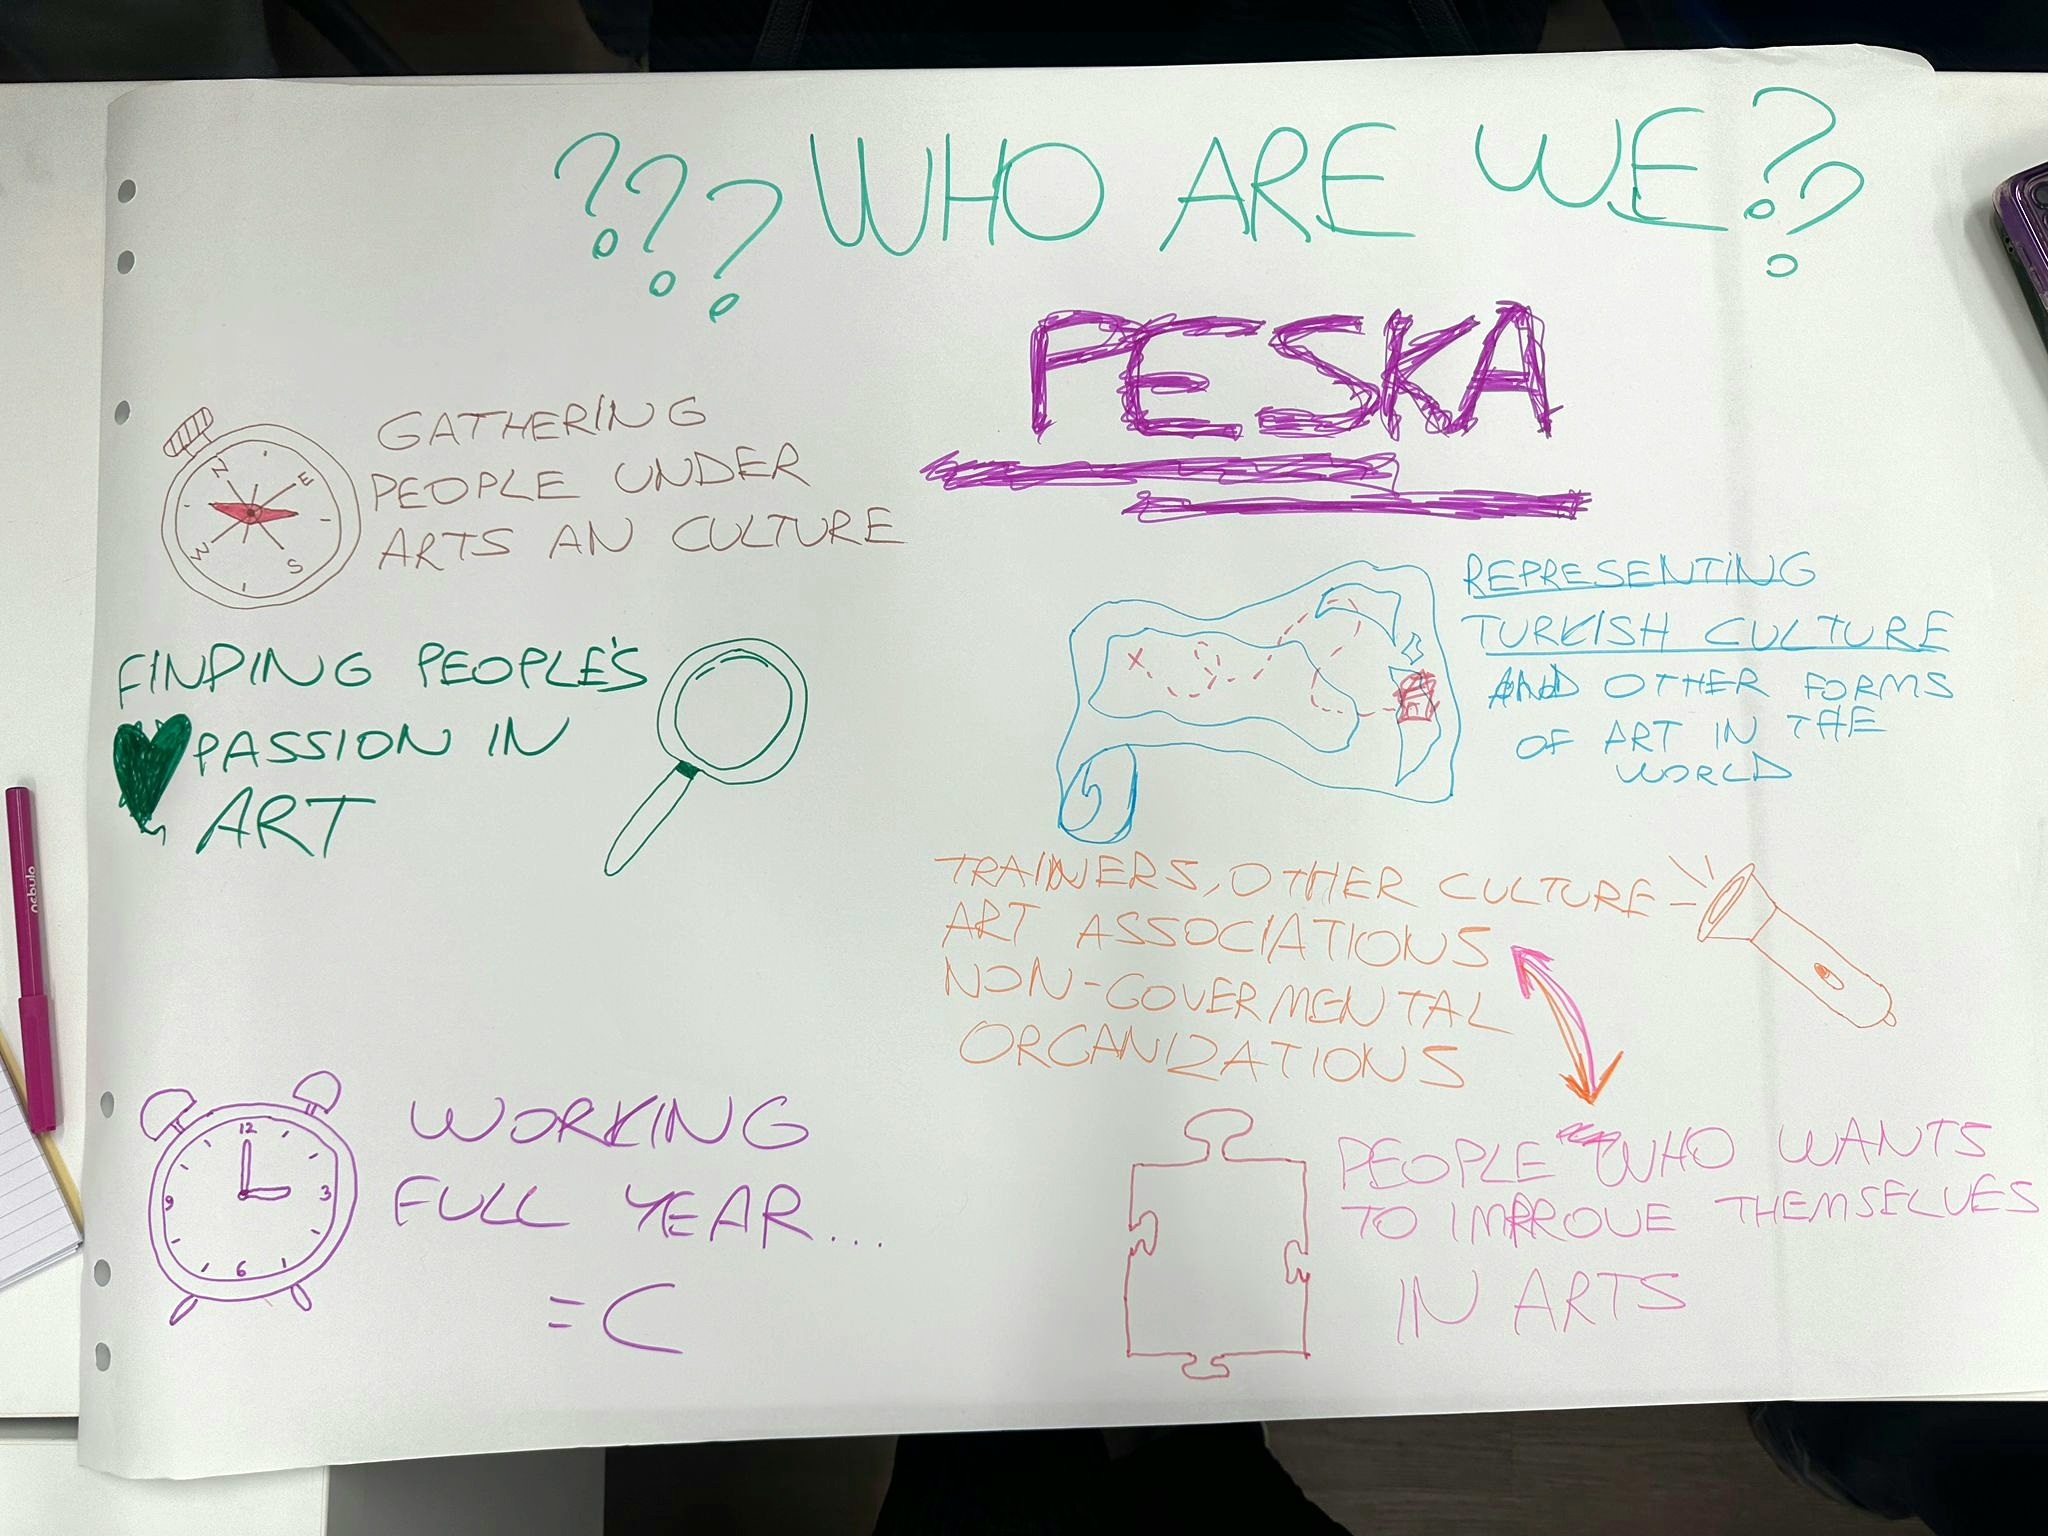 ??? WHO ARE WE??
PESKA
GATHERING
PEOPLE UNDER
ARTS AN CULTURE
N
E
W
S
FINDING PEOPLE'S
PASSION IN
ART
REPRESENTING
TURKISH CULTURE
AND OTHER FORMS
OF ART IN THE
WORLD
X
TRAINERS, OTHER CULTURE
ART ASSOCIATIONS
NON-GOVERMENTAL
ORGANIZATIONS
WORKING
FULL YEAR...
=C
12
3
6
9
PEOPLE WHO WANTS
TO IMPROVE THEMSELVES
IN ARTS
nebulo